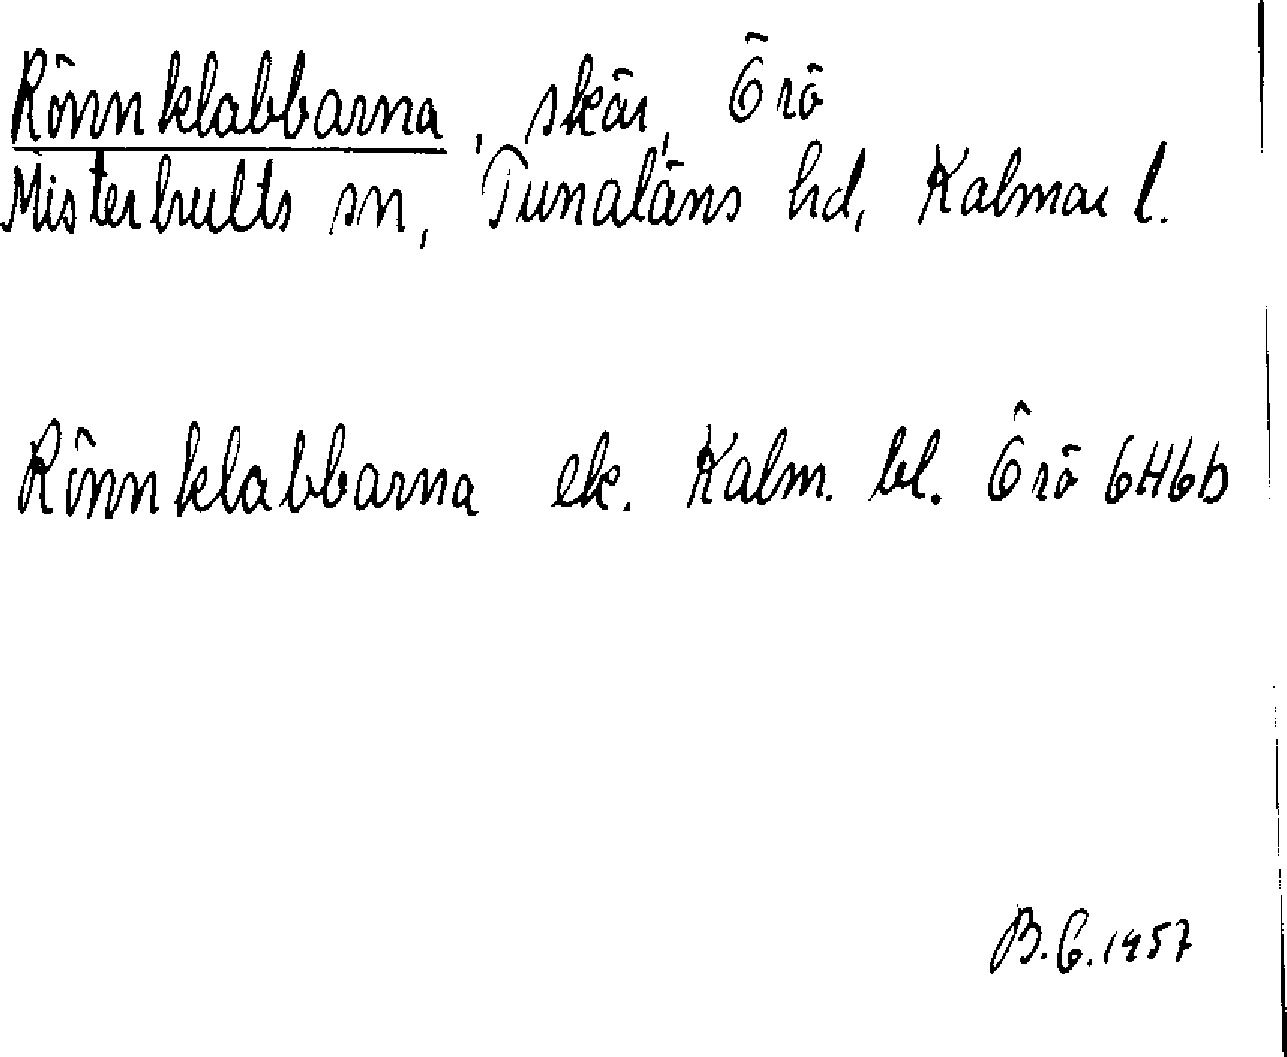 Rönnklabbarna, skär, Örö
Misterhults sn, Tunaläns hd, Kalmar l.
Rönnklabbarna ek. Kalm. bl. Örö 6H6b
B.G. 1957